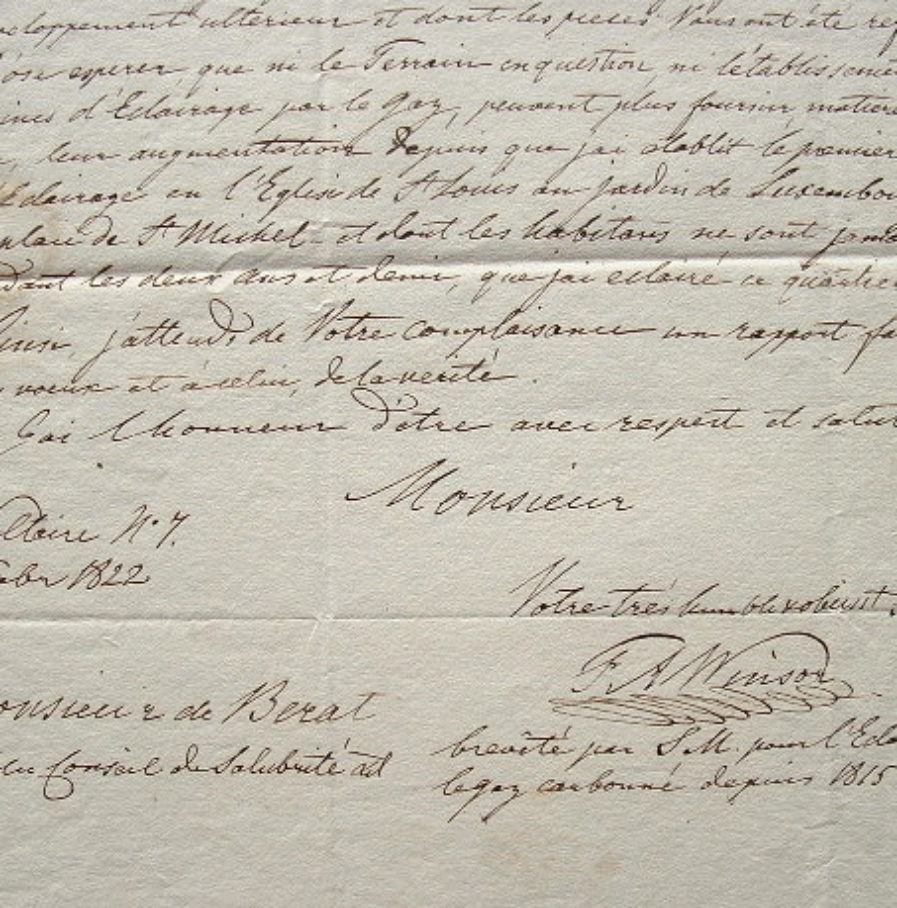 veloppement ultérieur et dont les pieces Vous ont été re
j'ose esperer que ni le Terrain en question, ni l'établisseme
ines d'Eclairage par le Gaz, peuvent plus fournir matiere
leur augmentation. Depuis que j'ai etablit le premier
Eclairage en l'Eglise de St Louis au jardin de Luxembou
place de St Michel - et dont les habitans ne sont jama
dant les deux ans et demie, que j'ai eclairé ce quartier
Ainsi, j'attends de Votre complaisance un rapport fa
voeux et à celui, de la verité.
J'ai l'honneur d'être avec respect et salut
Monsieur
N.o 7.
1822
Votre très humble & obeisst.
F. A Winsor
onsieur de Berat
Conseil de Salubrité
breveté par S.M. pour l'Ecla
le gaz carbonné depuis 1815